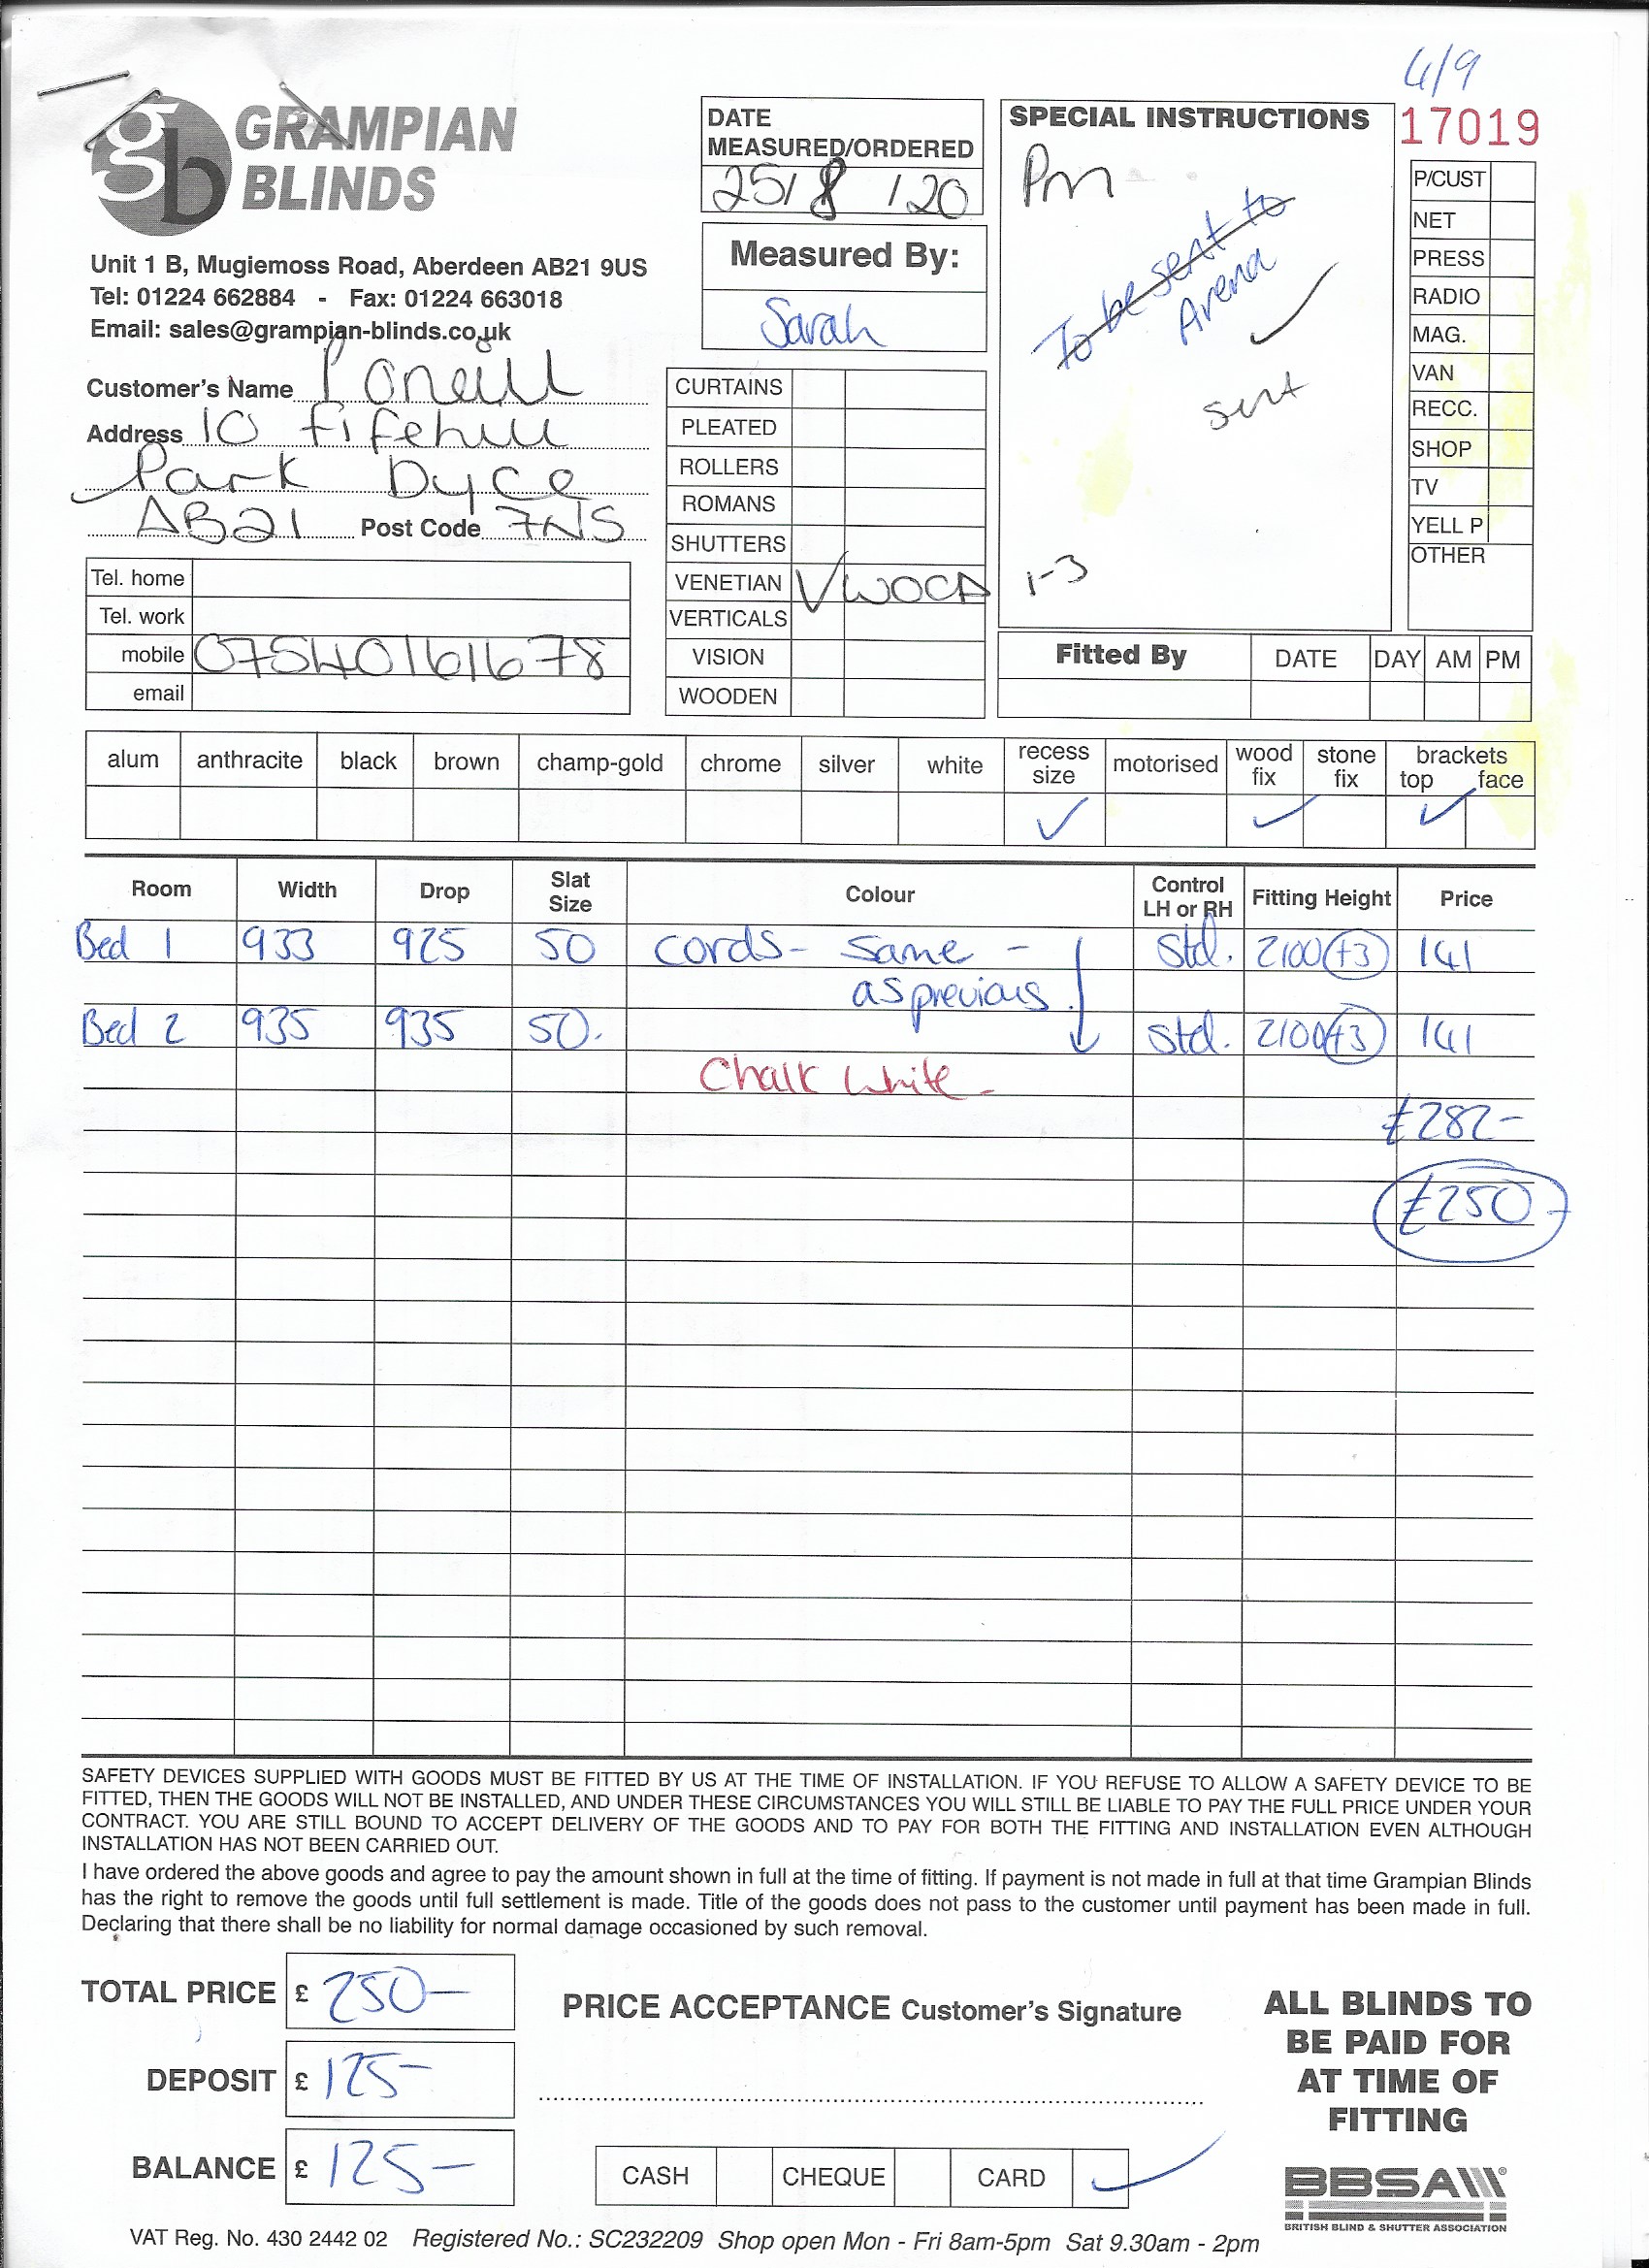 4/9
17019
gb GRAMPIAN
BLINDS
Unit 1 B, Mugiemoss Road, Aberdeen AB21 9US
Tel: 01224 662884 - Fax: 01224 663018
Email: sales@grampian-blinds.co.uk
DATE
MEASURED/ORDERED
25/8/20
Measured By:
Sarah
SPECIAL INSTRUCTIONS
Pm
To be sent to
Arena
✓
sent
1-3
P/CUST
NET
PRESS
RADIO
MAG.
VAN
RECC.
SHOP
TV
YELL P
OTHER
Customer's Name P Oneill
Address 10 Fifehill
Park Dyce
AB21 Post Code 7NS
Tel. home
Tel. work
mobile 07540161678
email
CURTAINS
PLEATED
ROLLERS
ROMANS
SHUTTERS
VENETIAN ✓ WOOD
VERTICALS
VISION
WOODEN
Fitted By DATE DAY AM PM
alum anthracite black brown champ-gold chrome silver white recess size motorised wood fix stone fix brackets top face
✓ ✓ ✓
Room Width Drop Slat Size Colour Control LH or RH Fitting Height Price
Bed 1 933 925 50 cords - same - Std. 2100 +3 141
as previous
Bed 2 935 935 50. Std. 2100 +3 141
Chalk White
£282-
£250-
SAFETY DEVICES SUPPLIED WITH GOODS MUST BE FITTED BY US AT THE TIME OF INSTALLATION. IF YOU REFUSE TO ALLOW A SAFETY DEVICE TO BE
FITTED, THEN THE GOODS WILL NOT BE INSTALLED, AND UNDER THESE CIRCUMSTANCES YOU WILL STILL BE LIABLE TO PAY THE FULL PRICE UNDER YOUR
CONTRACT. YOU ARE STILL BOUND TO ACCEPT DELIVERY OF THE GOODS AND TO PAY FOR BOTH THE FITTING AND INSTALLATION EVEN ALTHOUGH
INSTALLATION HAS NOT BEEN CARRIED OUT.
I have ordered the above goods and agree to pay the amount shown in full at the time of fitting. If payment is not made in full at that time Grampian Blinds
has the right to remove the goods until full settlement is made. Title of the goods does not pass to the customer until payment has been made in full.
Declaring that there shall be no liability for normal damage occasioned by such removal.
TOTAL PRICE £ 250-
DEPOSIT £ 125-
BALANCE £ 125-
PRICE ACCEPTANCE Customer's Signature
CASH CHEQUE CARD ✓
ALL BLINDS TO
BE PAID FOR
AT TIME OF
FITTING
BBSA
BRITISH BLIND & SHUTTER ASSOCIATION
VAT Reg. No. 430 2442 02 Registered No.: SC232209 Shop open Mon - Fri 8am-5pm Sat 9.30am - 2pm